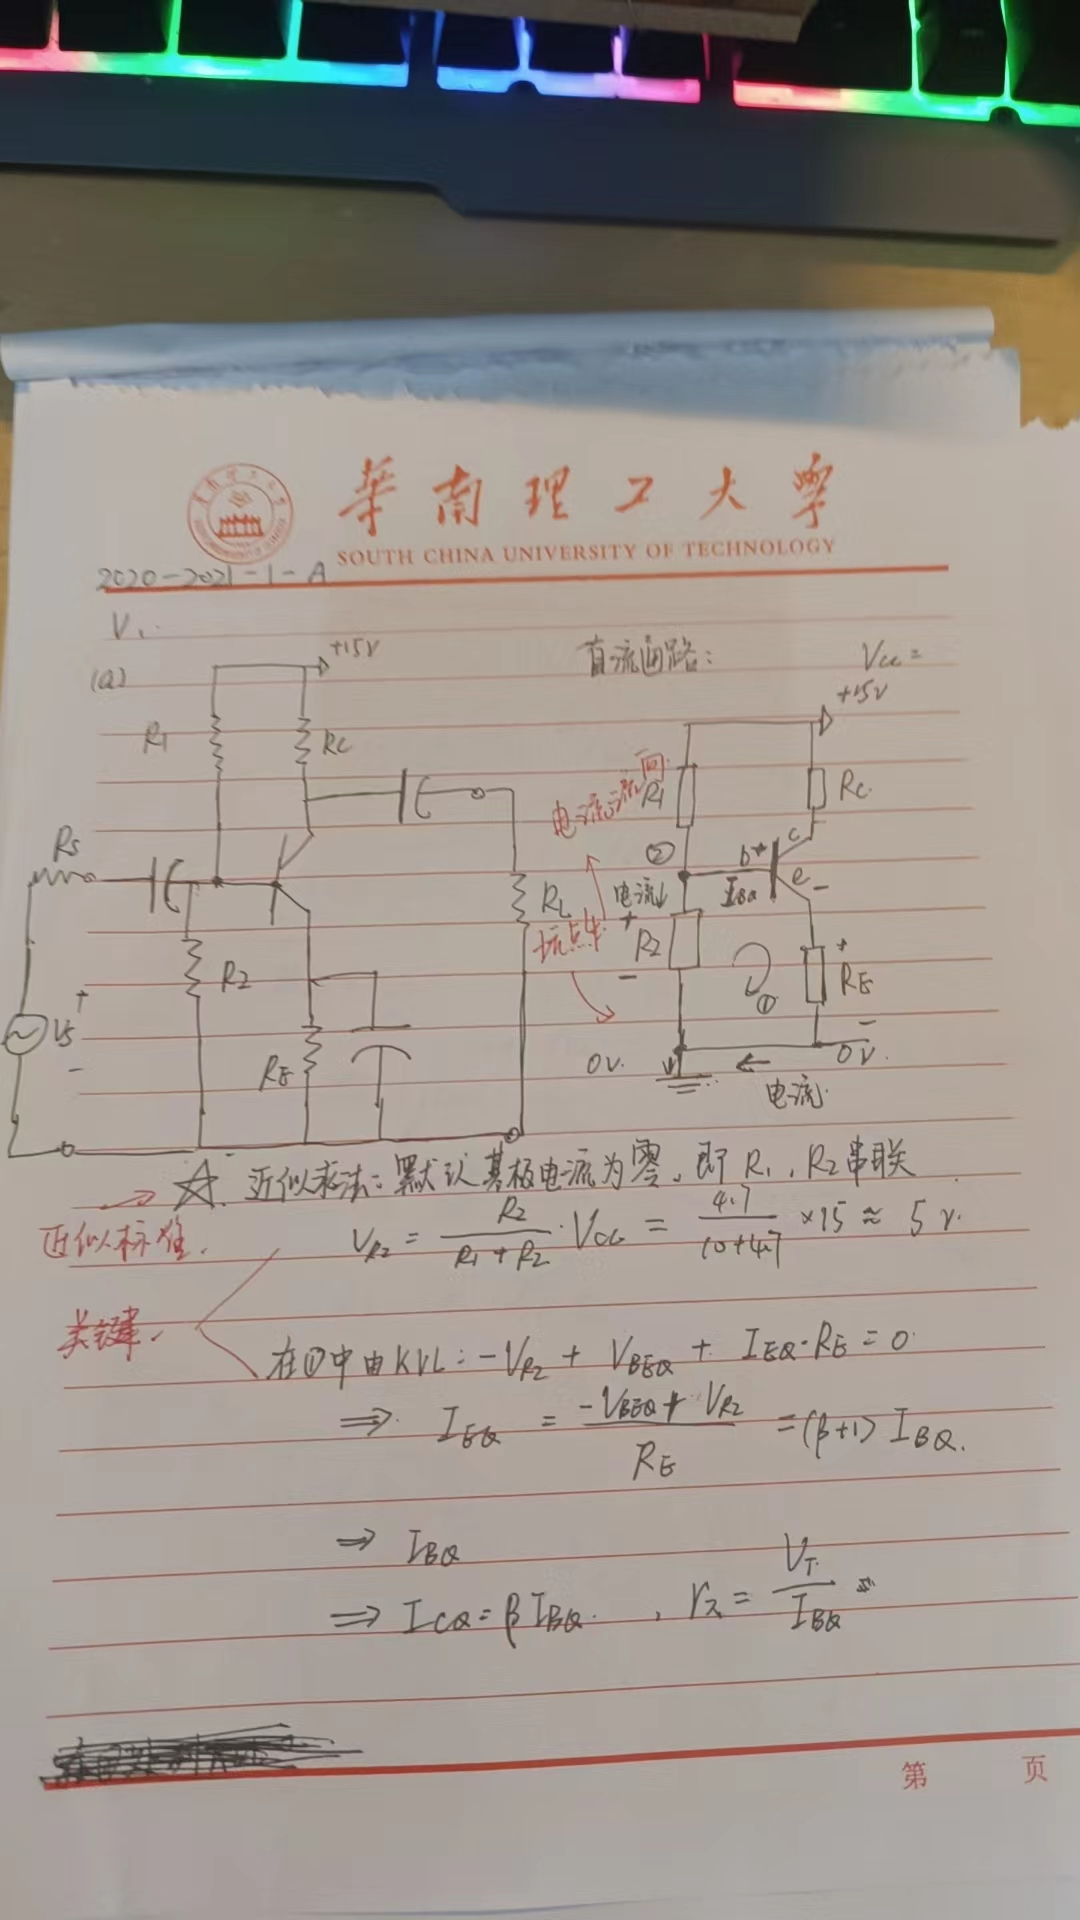 華南理工大學
SOUTH CHINA UNIVERSITY OF TECHNOLOGY
2020-2021-1-A
V、
(a)
+15V
直流通路:
Vcc =
+15V
R1
Rc
电流流向
R1
Rc.
②
b
+
c
e
-
IBQ
Rs
电流↓
RL
坑点
+
R2
-
+
RE
-
①
R2
+
Vs
-
RE
0V.
0V.
电流
☆ 近似求法:默认基极电流为零,即 R1,R2串联
近似标准.
VR2 = R2/(R1+R2) · Vcc = 4.7/(10+4.7) ×15 ≈ 5V.
关键.
在①中由KVL: -VR2 + VBEQ + IEQ·RE = 0
⇒ IEQ = (-VBEQ + VR2)/RE = (β+1) IBQ.
⇒ IBQ
⇒ ICQ = β IBQ. , rπ = VT/IBQ
第 页